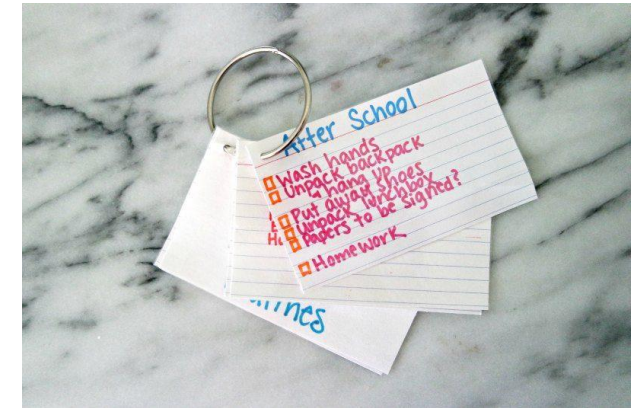 After School
Wash hands
Unpack backpack
↳ hang up
Put away shoes
Unpack lunchbox
Papers to be signed?
Homework